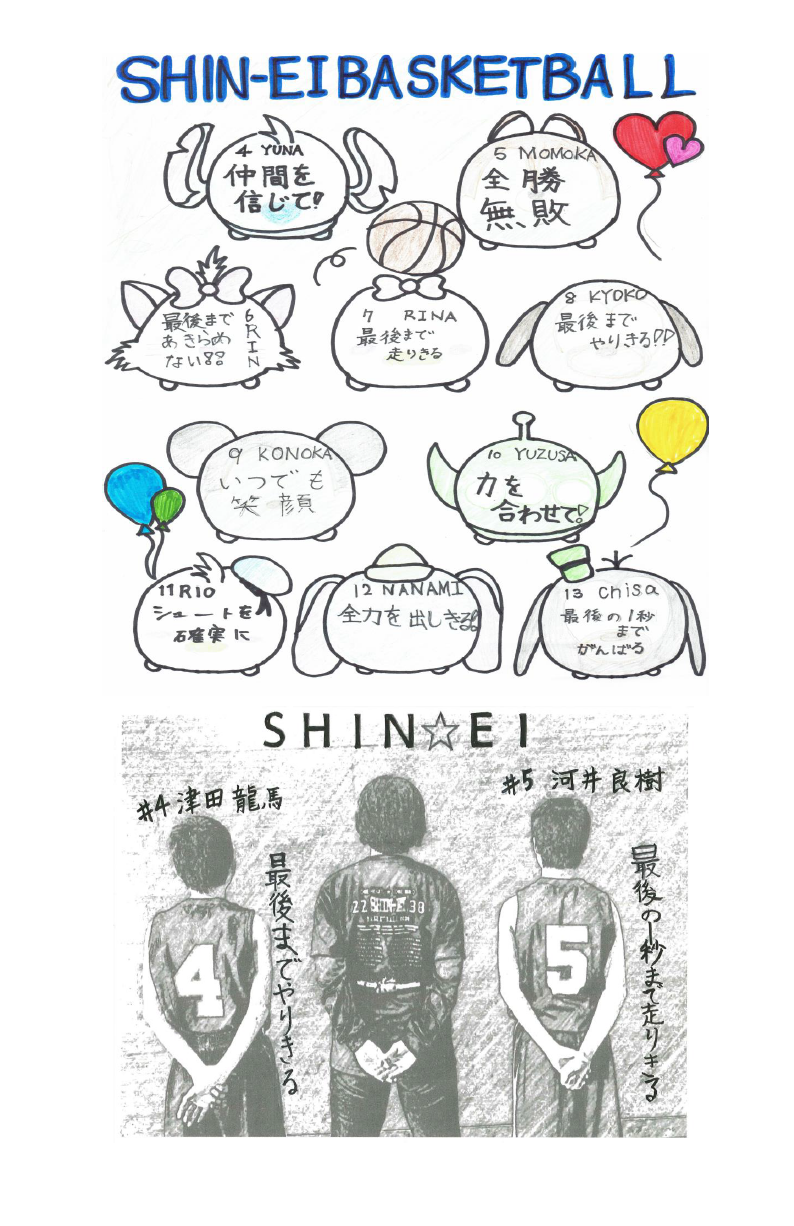 SHIN-EI BASKETBALL
4 YUNA
仲間を
信じて!
5 MOMOKA
全勝
無敗
6 RIN
最後まで
あきらめ
ない!!
7 RINA
最後まで
走りきる
8 KYOKO
最後まで
やりきる!!
9 KONOKA
いつでも
笑顔
10 YUZUSA
力を
合わせて!
11 RIO
シュートを
確実に
12 NANAMI
全力を出しきる!!
13 Chisa
最後の1秒
まで
がんばる
SHIN☆EI
#4 津田龍馬
#5 河井良樹
最後までやりきる
22 SHIN-EI 38
4
5
最後の1秒まで走りきる